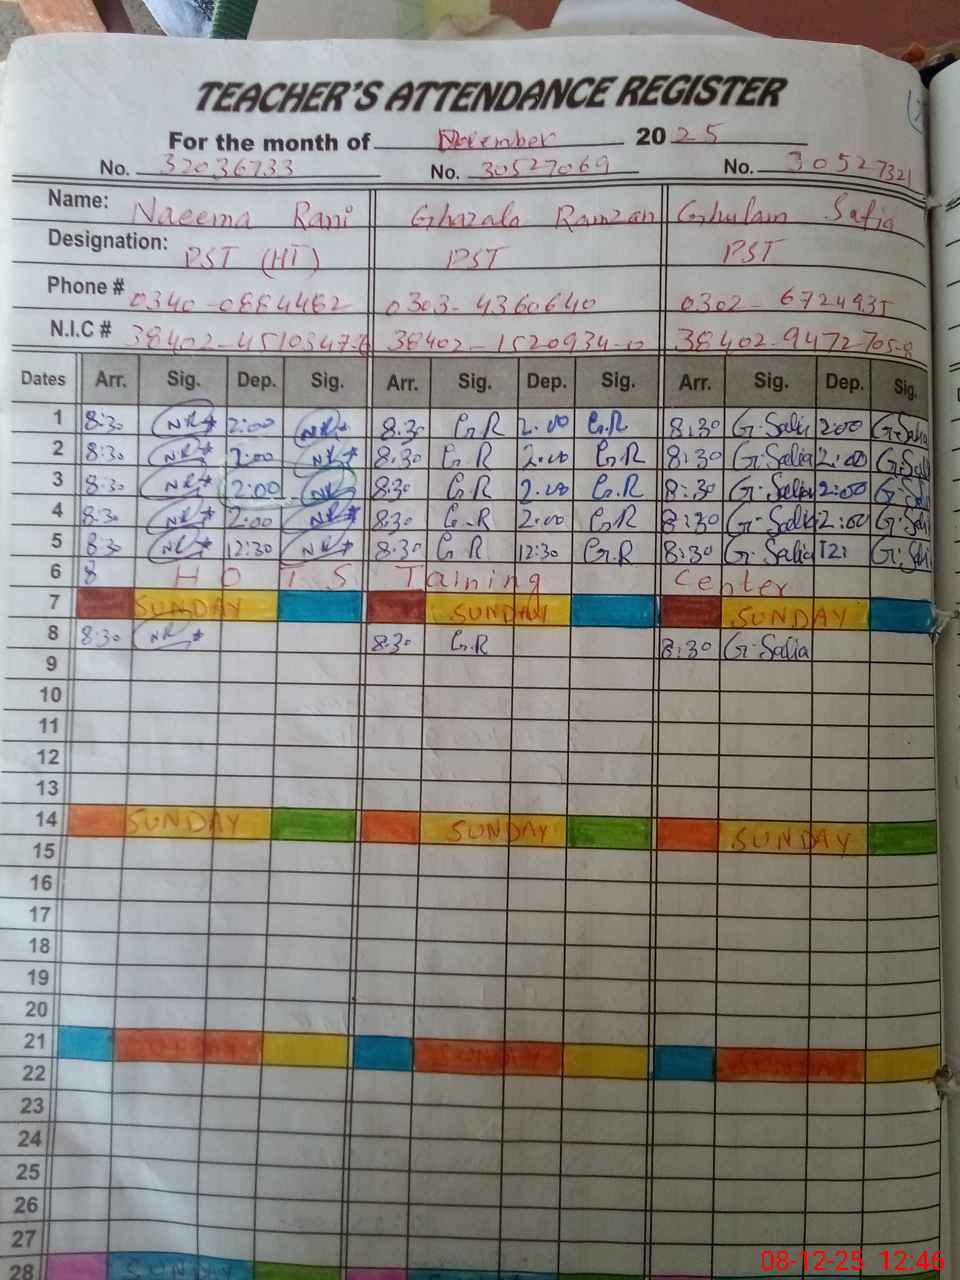 TEACHER'S ATTENDANCE REGISTER
For the month of November 2025
No. 32036733 No. 30527069 No. 30527321
Name: Naeema Rani Ghazala Ramzan Ghulam Safia
Designation: PST (HT) PST PST
Phone # 0340-0884482 0303-4360640 0302-6724935
N.I.C # 38402-4510347- 38402-1520934-0 38402-9472705-8
Dates Arr. Sig. Dep. Sig. Arr. Sig. Dep. Sig. Arr. Sig. Dep. Sig.
1 8:30 NR 2:00 NR 8:30 G.R 2:00 G.R 8:30 G.Safia 2:00 G.Safia
2 8:30 NR 2:00 NR 8:30 G.R 2:00 G.R 8:30 G.Safia 2:00 G.Safi
3 8:30 NR 2:00 NR 8:30 G.R 2:00 G.R 8:30 G.Safia 2:00 G.Safi
4 8:30 NR 2:00 NR 8:30 G.R 2:00 G.R 8:30 G.Safia 2:00 G.Safi
5 8:30 NR 12:30 NR 8:30 G.R 12:30 G.R 8:30 G.Safia 12: G.Safi
6 8 H O T S Taining Center
7 SUNDAY SUNDAY SUNDAY
8 8:30 NR 8:30 G.R 8:30 G.Safia
9
10
11
12
13
14 SUNDAY SUNDAY SUNDAY
15
16
17
18
19
20
21 SUNDAY SUNDAY SUNDAY
22
23
24
25
26
27
28 SUNDAY
08-12-25 12:46